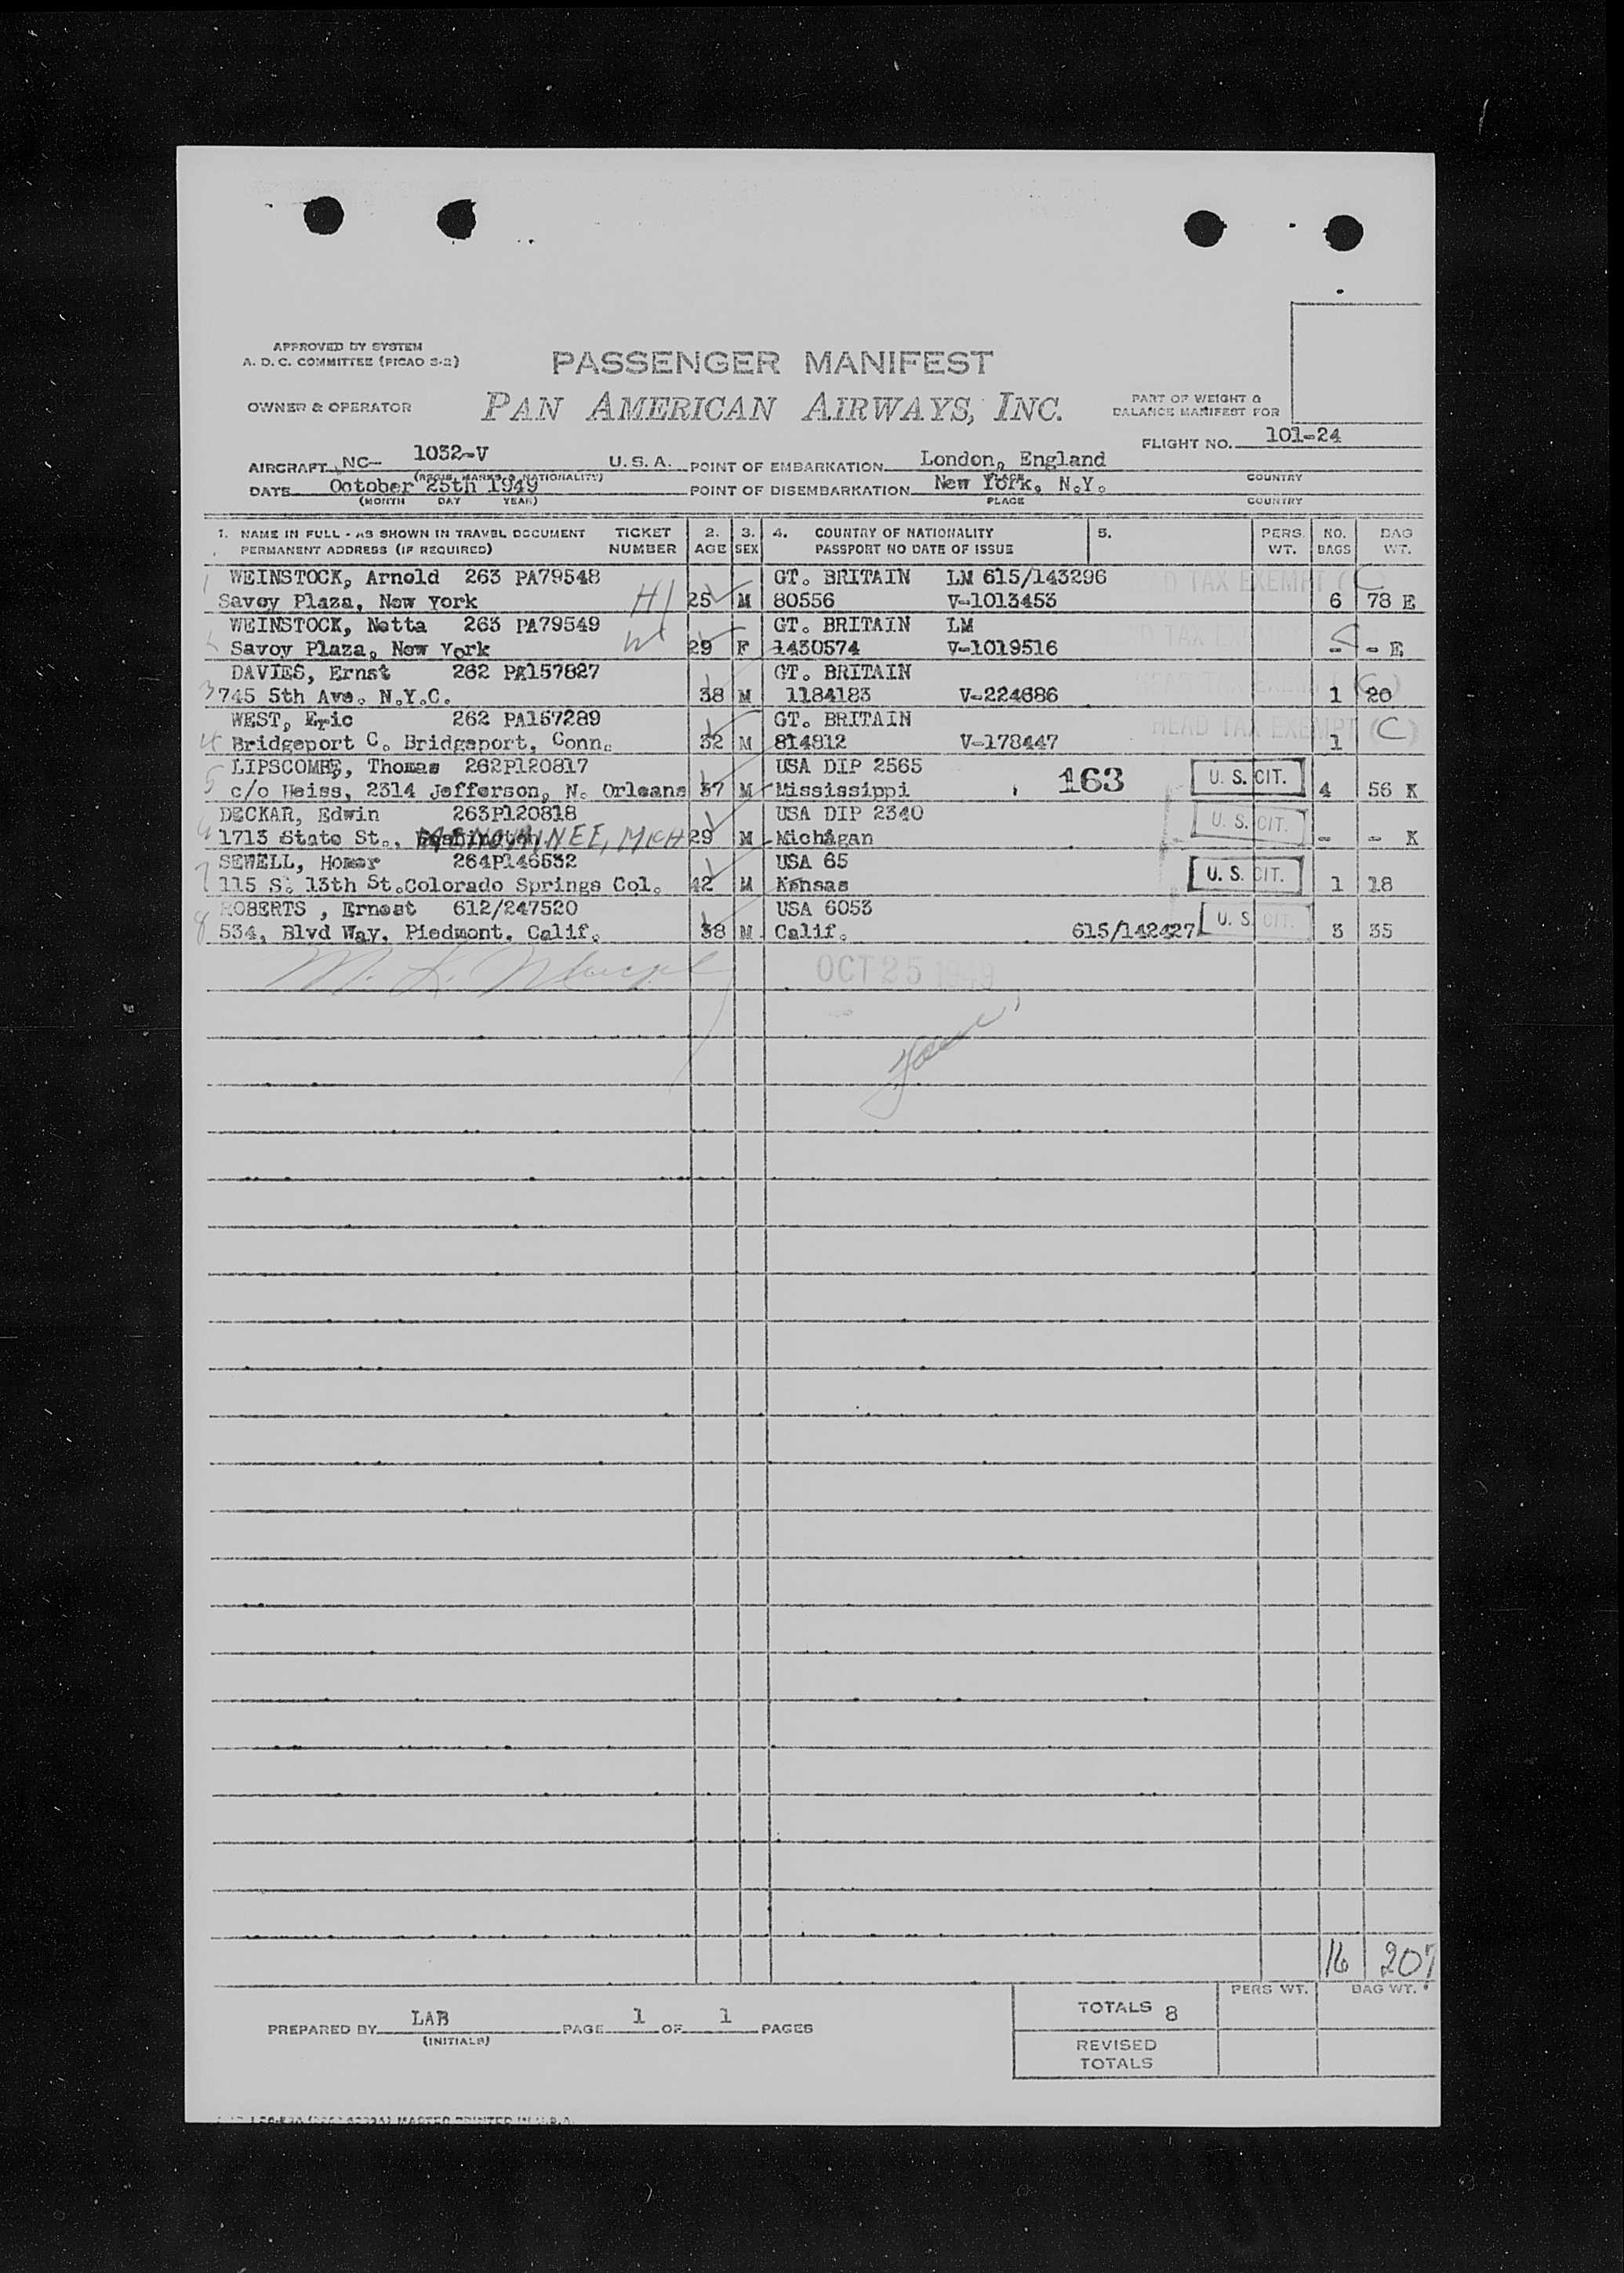 APPROVED BY SYSTEM
A. D. C. COMMITTEE (PICAO S-2)
PASSENGER MANIFEST
OWNER & OPERATOR
PAN AMERICAN AIRWAYS, INC.
PART OF WEIGHT &
BALANCE MANIFEST FOR
FLIGHT NO. 101-24
AIRCRAFT NC- 1032-V U. S. A. POINT OF EMBARKATION London, England
(REGIS. MARKS & NATIONALITY) PLACE COUNTRY
DATE October 25th 1949 POINT OF DISEMBARKATION New York, N.Y.
(MONTH DAY YEAR) PLACE COUNTRY
1. NAME IN FULL - AS SHOWN IN TRAVEL DOCUMENT TICKET 2. 3. 4. COUNTRY OF NATIONALITY 5. PERS. NO. BAG
PERMANENT ADDRESS (IF REQUIRED) NUMBER AGE SEX PASSPORT NO DATE OF ISSUE WT. BAGS WT.
1 WEINSTOCK, Arnold 263 PA79548 GT. BRITAIN LM 615/143296 HEAD TAX EXEMPT (C)
Savoy Plaza, New York H1 25 M 80556 V-1013453 6 78 E
WEINSTOCK, Netta 263 PA79549 GT. BRITAIN LM HEAD TAX
Savoy Plaza, New York 29 F 1430574 V-1019516 - - E
3 DAVIES, Ernst 262 PA157827 GT. BRITAIN HEAD TAX EXEMPT (C)
745 5th Ave. N.Y.C. 38 M 1184183 V-224686 1 20
4 WEST, Eric 262 PA157289 GT. BRITAIN HEAD TAX EXEMPT (C)
Bridgeport C. Bridgeport, Conn. 32 M 814812 V-178447 1
5 LIPSCOMBE, Thomas 262P120817 USA DIP 2565 163 U. S. CIT.
c/o Weiss, 2314 Jefferson, N. Orleans 37 M Mississippi 4 56 K
DECKAR, Edwin 263P120818 USA DIP 2340 U. S. CIT.
1713 State St., MENOMINEE, MICH 29 M Michigan - - K
7 SEWELL, Homer 264P146532 USA 65 U. S. CIT.
115 S. 13th St. Colorado Springs Col. 42 M Kansas 1 18
8 ROBERTS , Ernest 612/247520 USA 6053 U. S. CIT.
534, Blvd Way, Piedmont, Calif. 38 M Calif. 615/142427 3 35
OCT 25 1949
16 207
PERS WT. BAG WT.
TOTALS 8
PREPARED BY LAB PAGE 1 OF 1 PAGES
(INITIALS)
REVISED
TOTALS